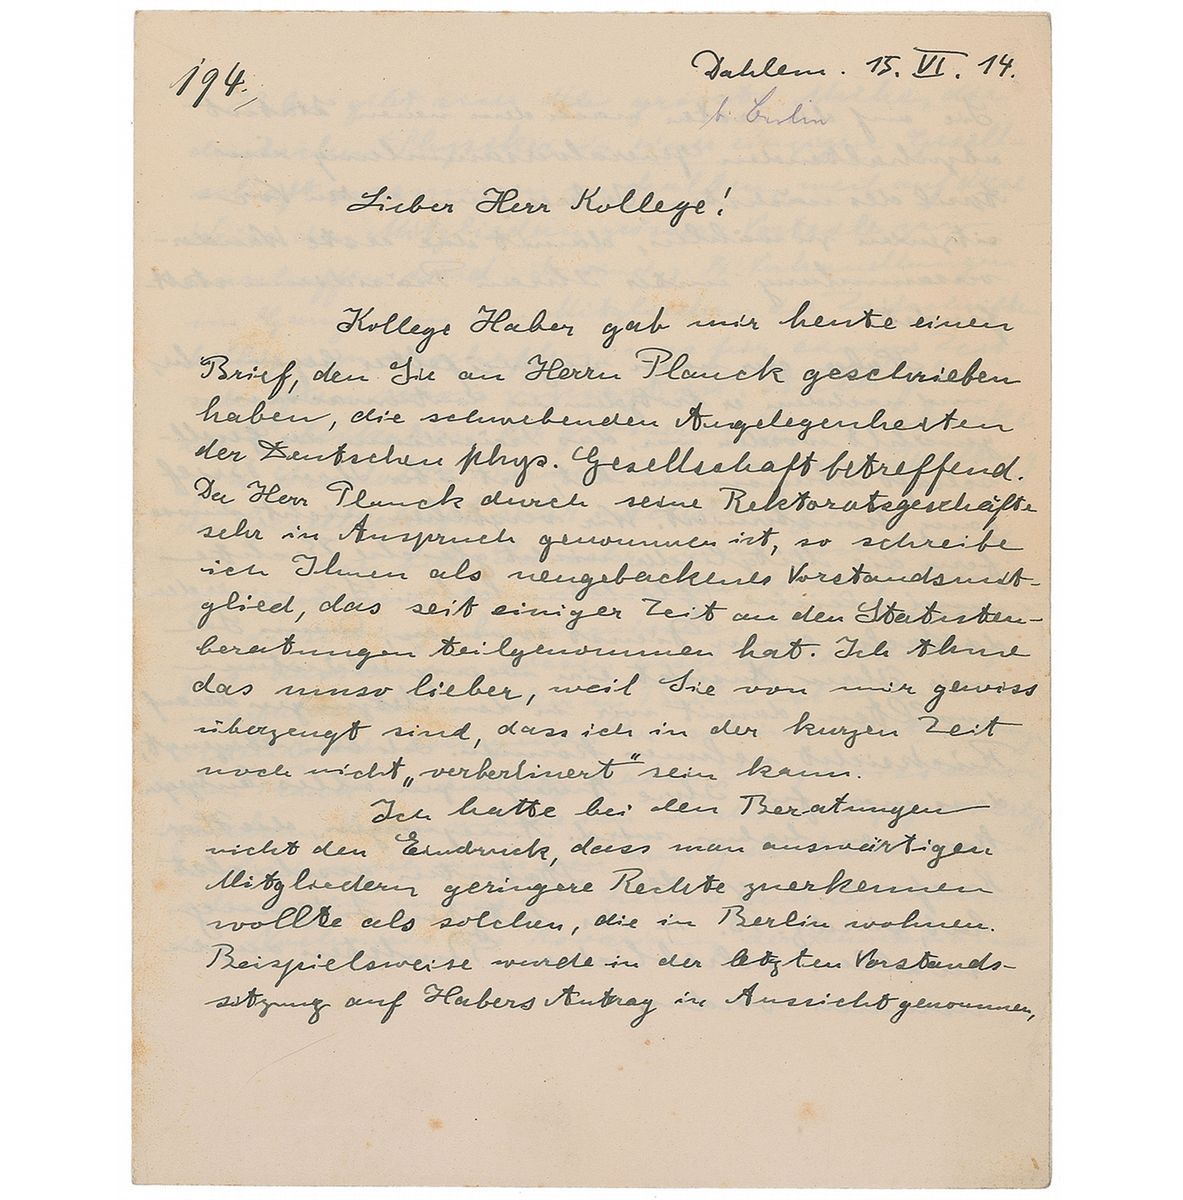 194.
Dahlem. 15. VI. 14.
b. Berlin
Lieber Herr Kollege!
Kollege Haber gab mir heute einen
Brief, den Sie an Herrn Planck geschrieben
haben, die schwebenden Angelegenheiten
der Deutschen phys. Gesellschaft betreffend.
Da Herr Planck durch seine Rektoratsgeschäfte
sehr in Anspruch genommen ist, so schreibe
ich Ihnen als neugebackenes Vorstandsmit-
glied, das seit einiger Zeit an den Statuten-
beratungen teilgenommen hat. Ich thue
das umso lieber, weil Sie von mir gewiss
überzeugt sind, dass ich in der kurzen Zeit
noch nicht „verberlinert" sein kann.
Ich hatte bei den Beratungen
nicht den Eindruck, dass man auswärtigen
Mitgliedern geringere Rechte zuerkennen
wollte als solchen, die in Berlin wohnen.
Beispielsweise wurde in der letzten Vorstands-
sitzung auf Habers Antrag in Aussicht genommen,